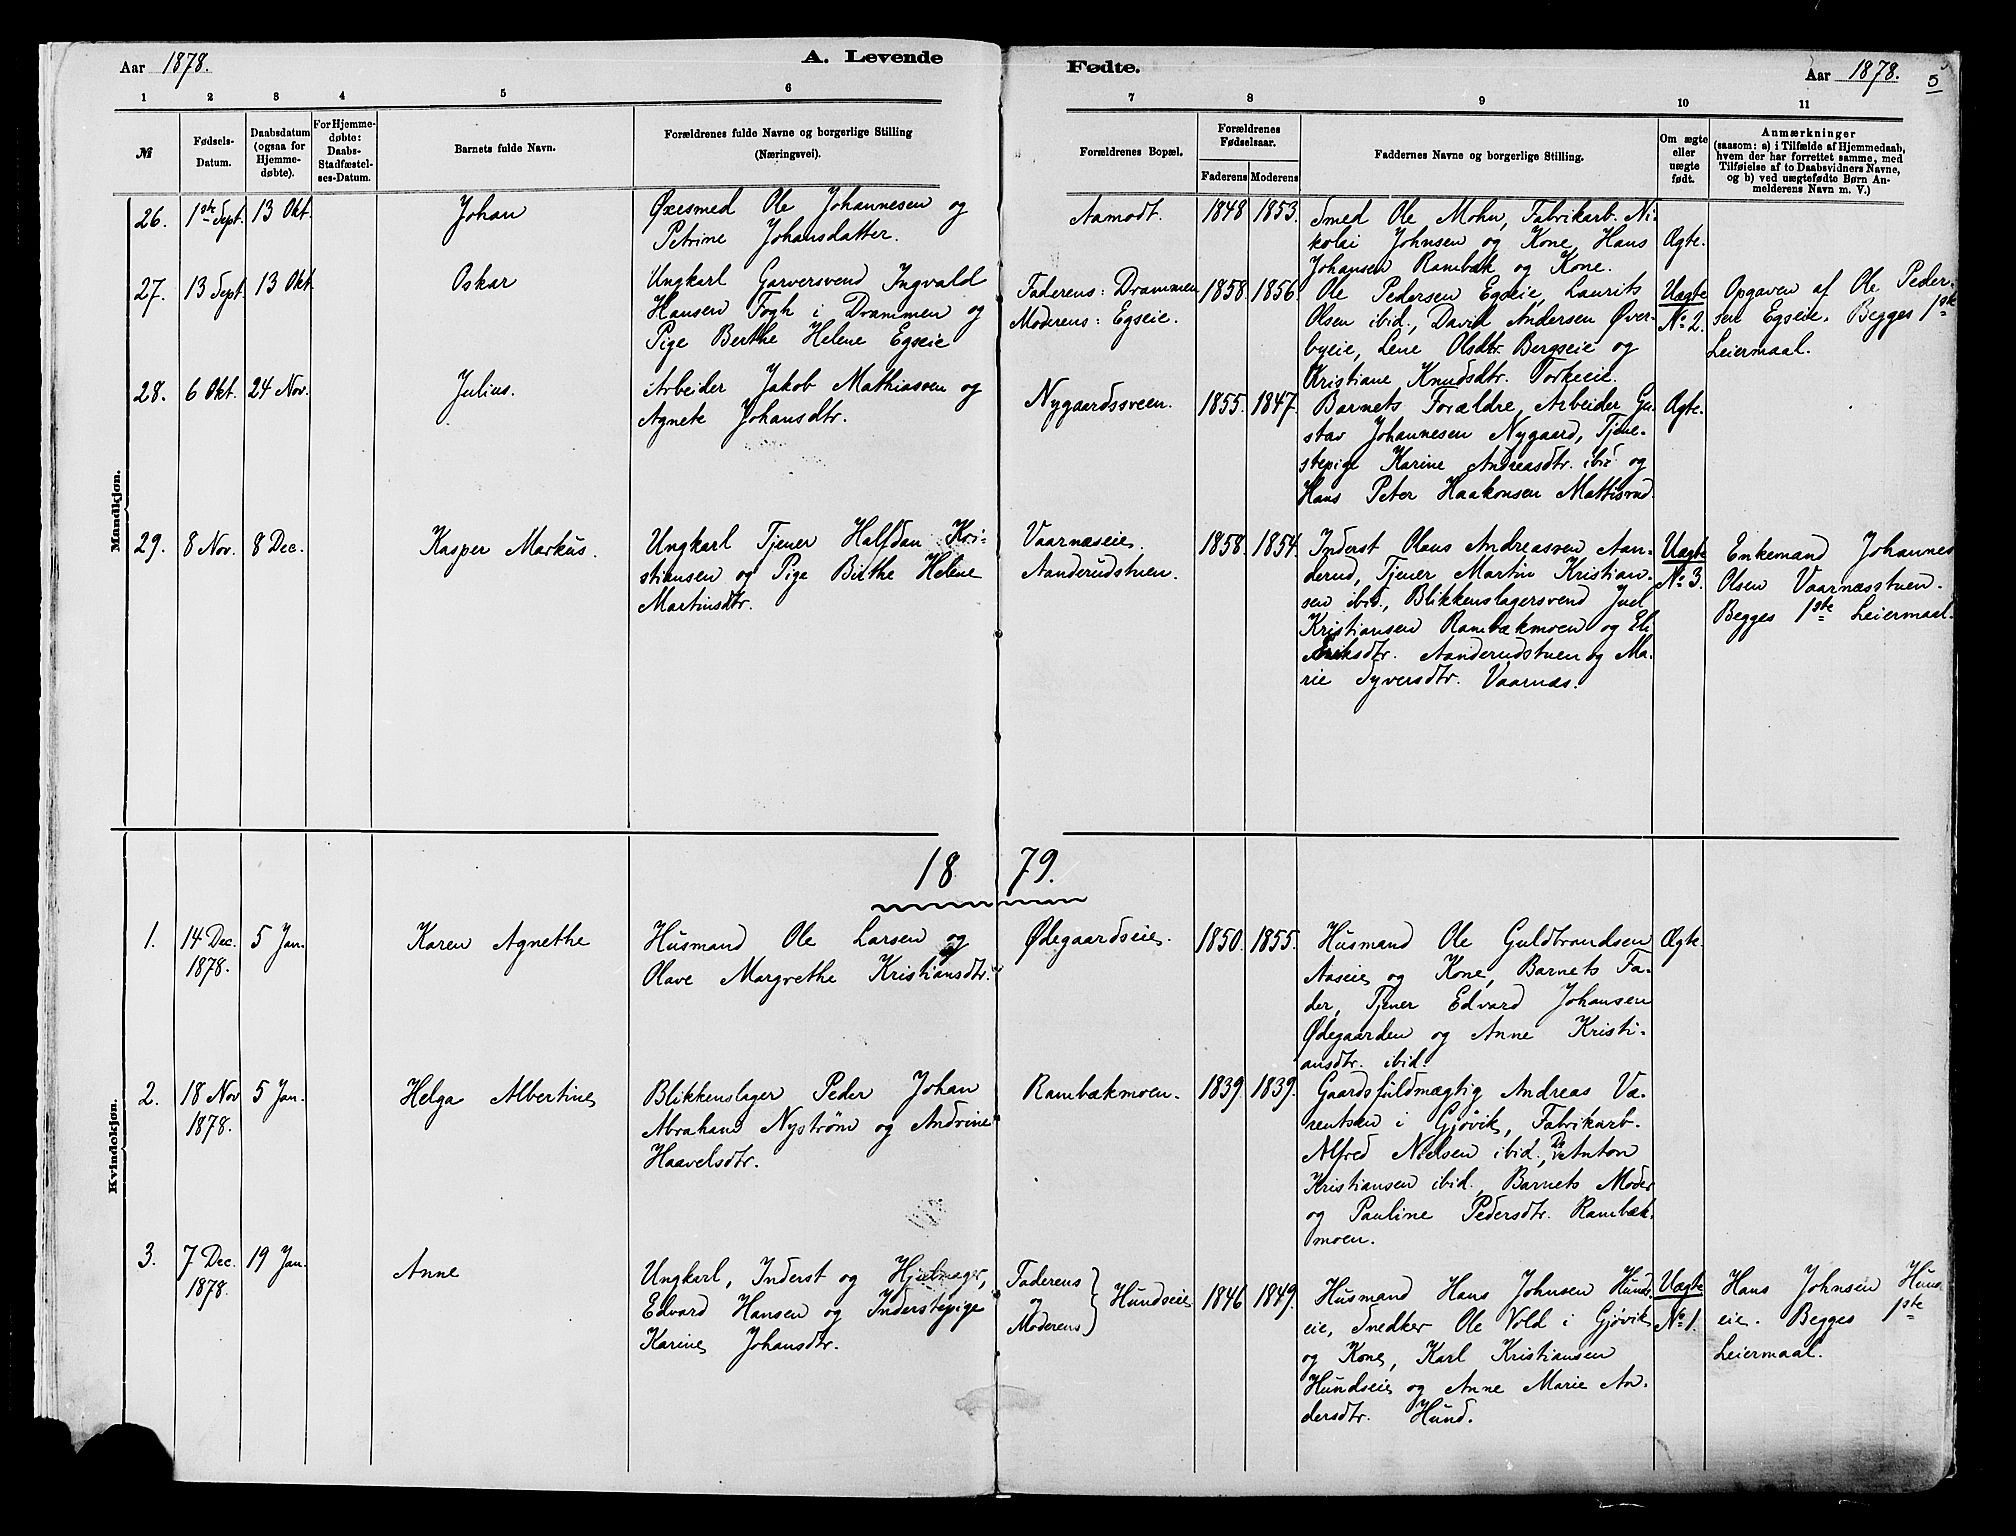 Aar 1878.
A. Levende
Fødte.
Aar 1878.
5
1 2 3 4 5 6
7 8 9 10 11
№
Fødsels-
Datum.
Daabsdatum
(ogsaa for
Hjemme-
døbte).
For Hjemme-
døbte:
Daabs-
Stadfæstel-
ses-Datum.
Barnets fulde Navn.
Forældrenes fulde Navne og borgerlige Stilling
(Næringsvei).
Forældrenes Bopæl.
Forældrenes
Fødselsaar.
Faderens Moderens
Faddernes Navne og borgerlige Stilling.
Om ægte
eller
uægte
født.
Anmærkninger
(saasom: a) i Tilfælde af Hjemmedaab,
hvem der har forrettet samme, med
Tilføielse af to Daabsvidners Navne,
og b) ved uægtefødte Børn An-
melderens Navn m. V.)
Mandkjøn.
26.
1ste Sept.
13 Okt.
Johan
Øxesmed Ole Johannesen og
Petrine Johansdatter.
Aamodt.
1848
1853.
Smed Ole Mohn, Fabrikarb. Ni-
kolai Johnsen og Kone, Hans
Johansen Rambæk og Kone.
Ægte.
27.
13 Sept
13 Okt
Oskar
Ungkarl Garversvend Ingvald
Hansen Fogh i Drammen og
Pige Berthe Helene Egseie
Faderens: Drammen
Moderens: Egseie.
1858
1856.
Ole Pedersen Egseie, Laurits
Olsen ibid., David Andersen Øver-
byeie, Lene Olsdtr. Bergseie og
Kristiane Knudsdtr. Torkeeie.
Uægte
No 2.
Opgaven af Ole Peder-
sen Egseie. Begges 1ste
Leiermaal.
28.
6 Okt.
24 Nov.
Julius.
Arbeider Jakob Mathiassen og
Agnete Johansdtr.
Nygaardssveen.
1855.
1847.
Barnets Forældre, Arbeider Gu-
stav Johannesen Nygaard, Tjene-
stepige Karine Andreasdtr. ibid og
Hans Peter Haakonsen Mattisrud.
Ægte.
29.
8 Nov.
8 Dec.
Kasper Markus.
Ungkarl Tjener Halfdan Kri-
stiansen og Pige Birthe Helene
Martinsdtr.
Vaarnæseie.
Aanderudstuen.
1858.
1854.
Inderst Olaus Andreassen Aan-
derud, Tjener Martin Kristian-
sen ibid., Blikkenslagersvend Juel
Kristiansen Rambækmoen og Eli
Eriksdtr. Aanderudstuen og Ma-
rie Syversdtr. Vaarnæs.
Uægte
No 3.
Enkemand Johannes
Olsen Vaarnæsstuen.
Begges 1ste Leiermaal.
1879.
Kvindekjøn.
1.
14 Dec.
1878.
5 Jan.
Karen Agnethe
Husmand Ole Larsen og
Olave Margrethe Kristiansdtr.
Ødegaardseie.
1850.
1855.
Husmand Ole Guldbrandsen
Aaseie og Kone, Barnets Fa-
der, Tjener Edvard Johansen
Ødegaarden og Anne Kristi-
ansdtr. ibid.
Ægte.
2.
18 Nov
1878.
5 Jan.
Helga Albertine
Blikkenslager Peder Johan
Abraham Nyström og Andrine
Haavelsdtr.
Rambækmoen.
1839.
1839.
Gaardsfuldmægtig Andreas Va-
rentsen i Gjøvik, Fabrikarb.
Alfred Nielsen ibid., Do Anton
Kristiansen ibid., Barnets Moder
og Pauline Pedersdtr. Rambæk-
moen.
3.
7 Dec.
1878.
19 Jan.
Anne
Ungkarl, Inderst og Hjulmager,
Edvard Hansen og Inderstepige
Karine Johansdtr.
Faderens
og
Moderens
Hundseie
1846
1849.
Husmand Hans Johnsen Hunds-
eie, Snedker Ole Vold i Gjøvik
og Kone, Karl Kristiansen
Hundseie og Anne Marie An-
dersdtr. Hund.
Uægte
No 1.
Hans Johnsen Hunds-
eie. Begges 1ste
Leiermaal.